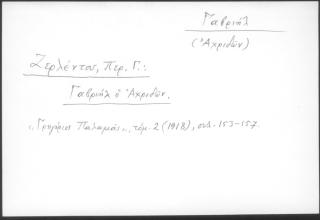 Γαβριήλ
(Ἀχριδῶν)
Ζερλέντας, Περ. Γ.:
Γαβριήλ ὁ Ἀχριδῶν.
«Γρηγόριος Παλαμᾶς», τόμ. 2 (1918), σελ. 153-157.